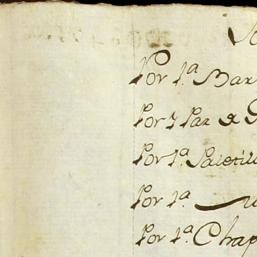 Por 1ª Bar
Por 1 Par de
Por 1ª Paletill
Por 1ª
Por 1ª Chap